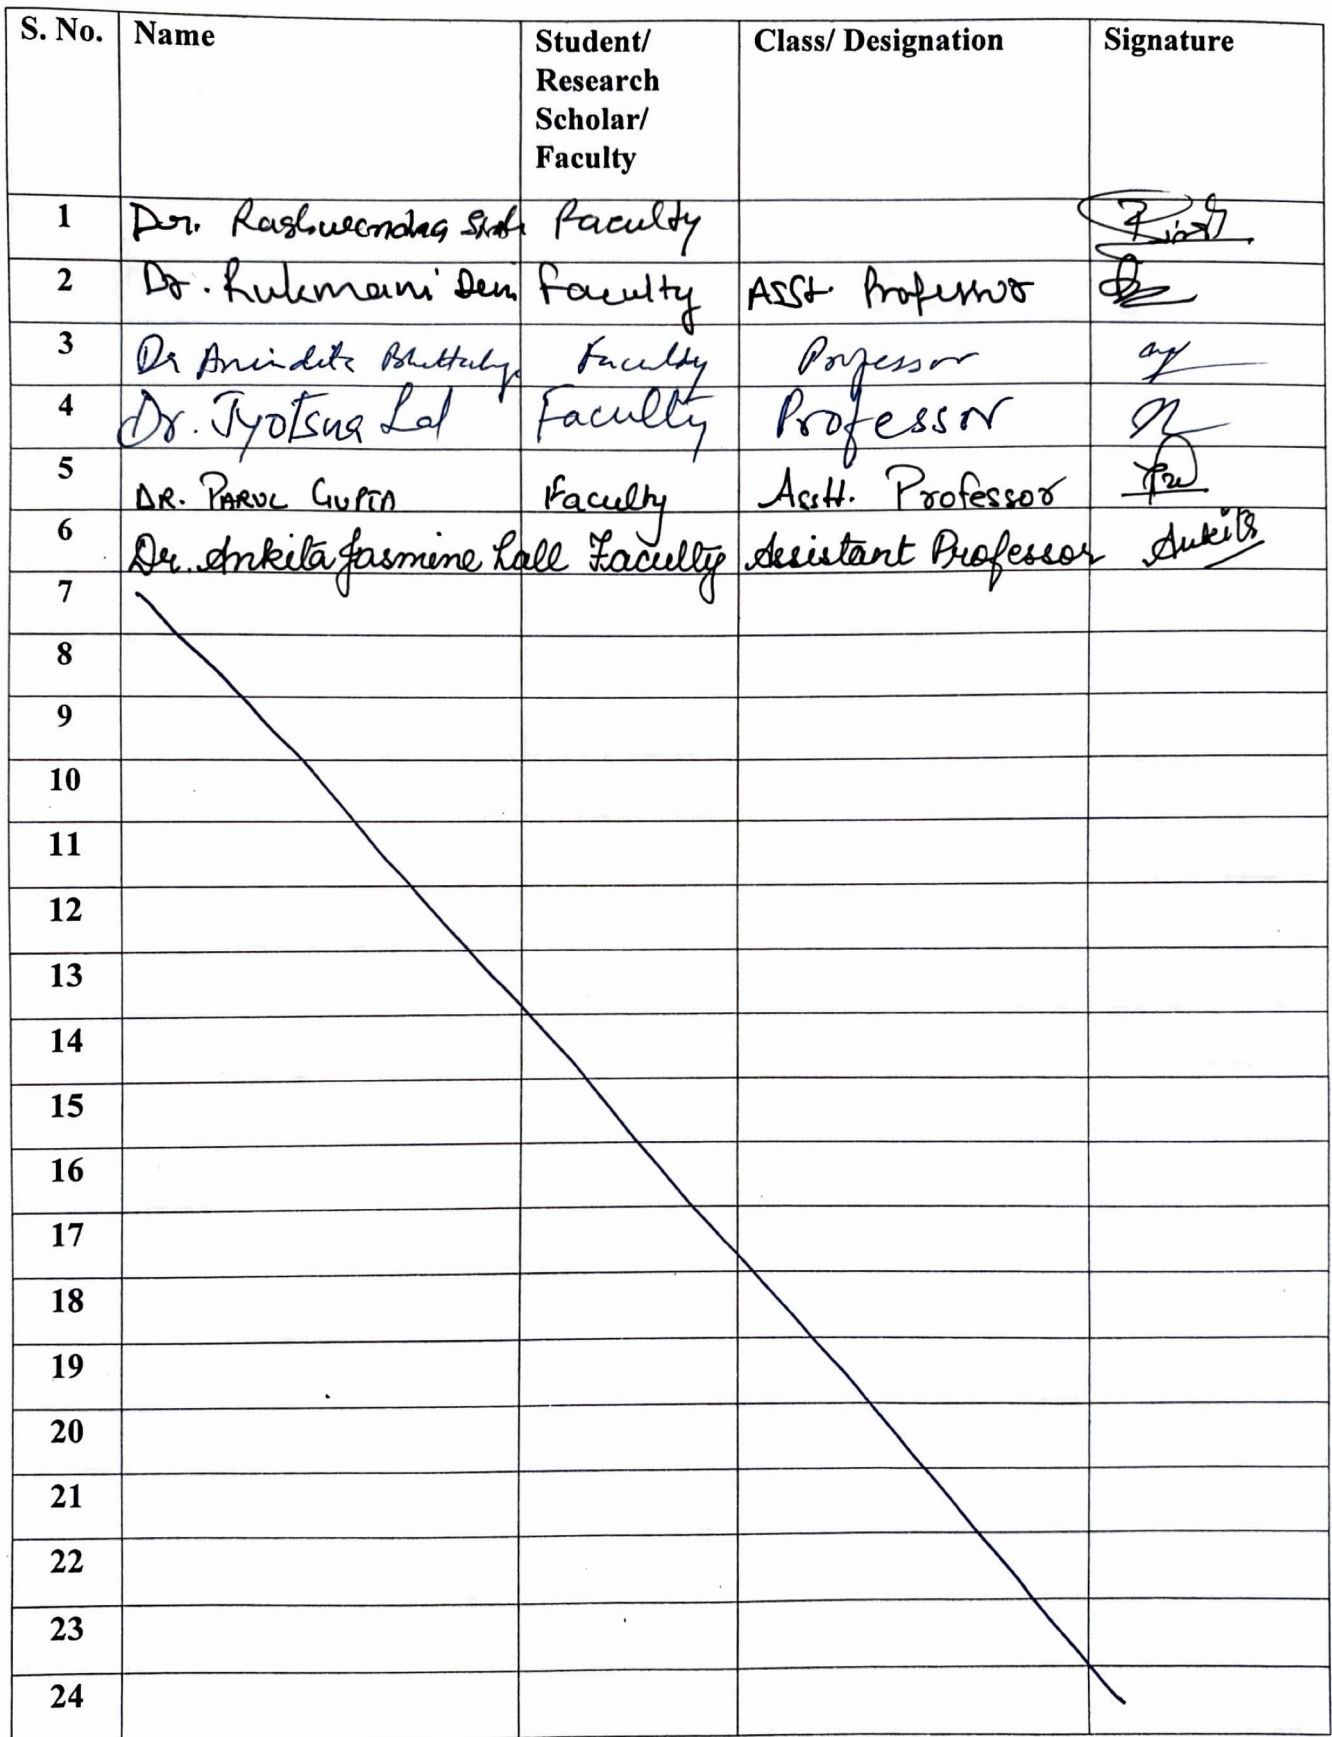 S. No. Name Student/ Research Scholar/ Faculty Class/ Designation Signature
1 Dr. Faculty
2 Dr. Rukmani Devi Faculty Asst. Professor
3 Dr Anindita Faculty Professor
4 Dr. Jyotsna Lal Faculty Professor
5 DR. PARUL GUPTA Faculty Asstt. Professor
6 Dr. Ankita Jasmine Lall Faculty Assistant Professor Ankita
7
8
9
10
11
12
13
14
15
16
17
18
19
20
21
22
23
24